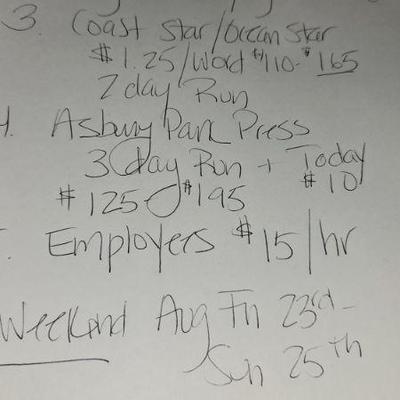 3. Coast Star/Ocean Star
$1.25/Word $110-$165
2 day Run
4. Asbury Park Press
3 day Run + Today
$125-$195 $10
Employers $15/hr
Weekend Aug Fri 23rd-
Sun 25th